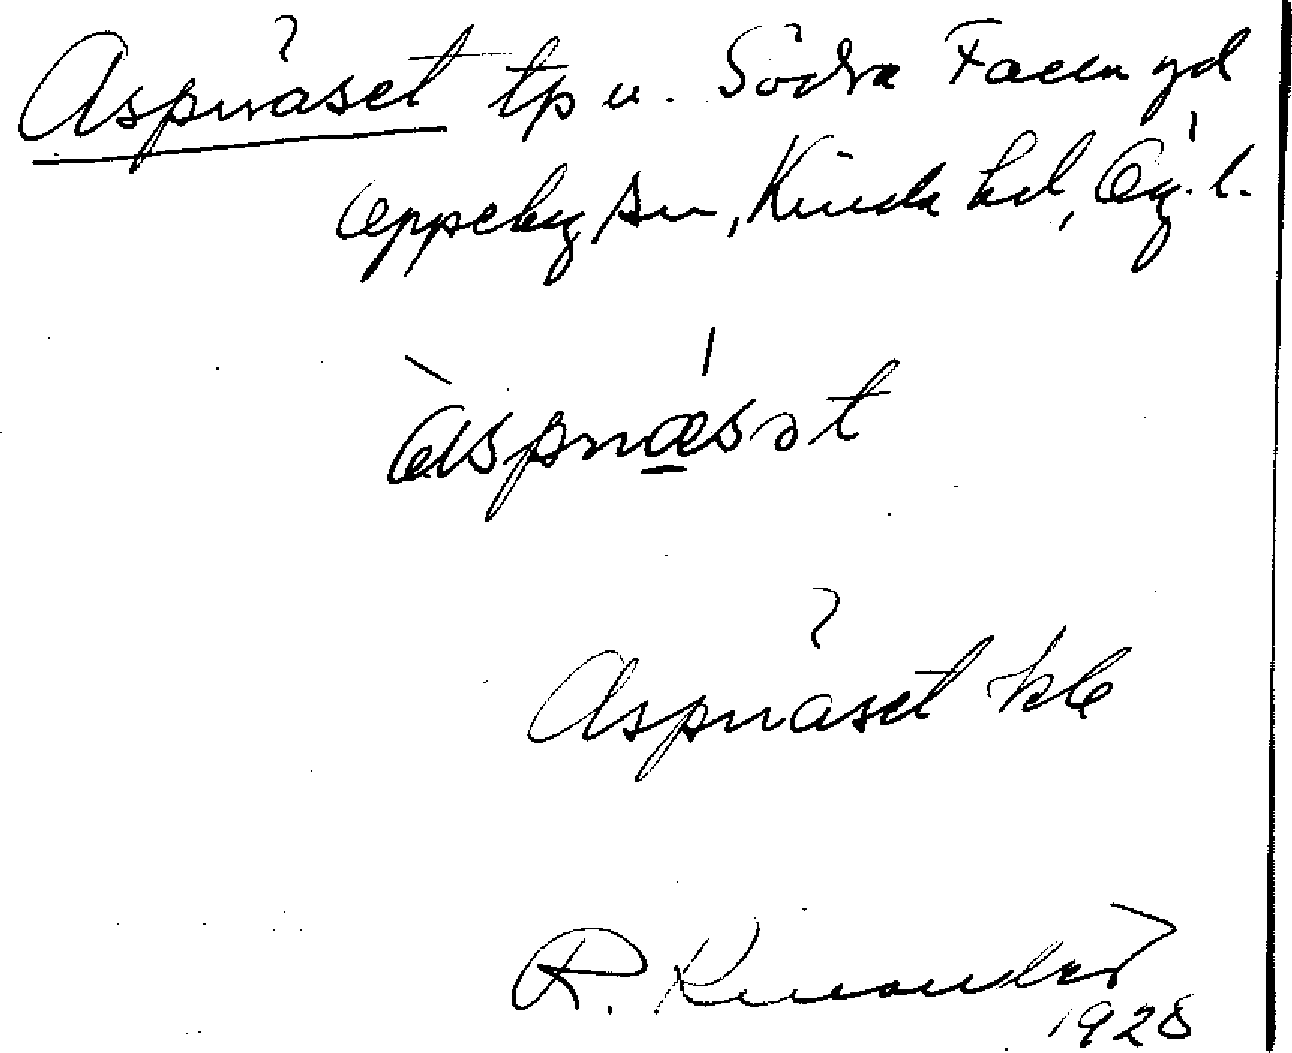 Aspnäset tp u. Södra Falla gd
Oppeby sn, Kinda hd, Ög. l.
àspnǽsət
Aspnäset kb
R. Kinander
1928